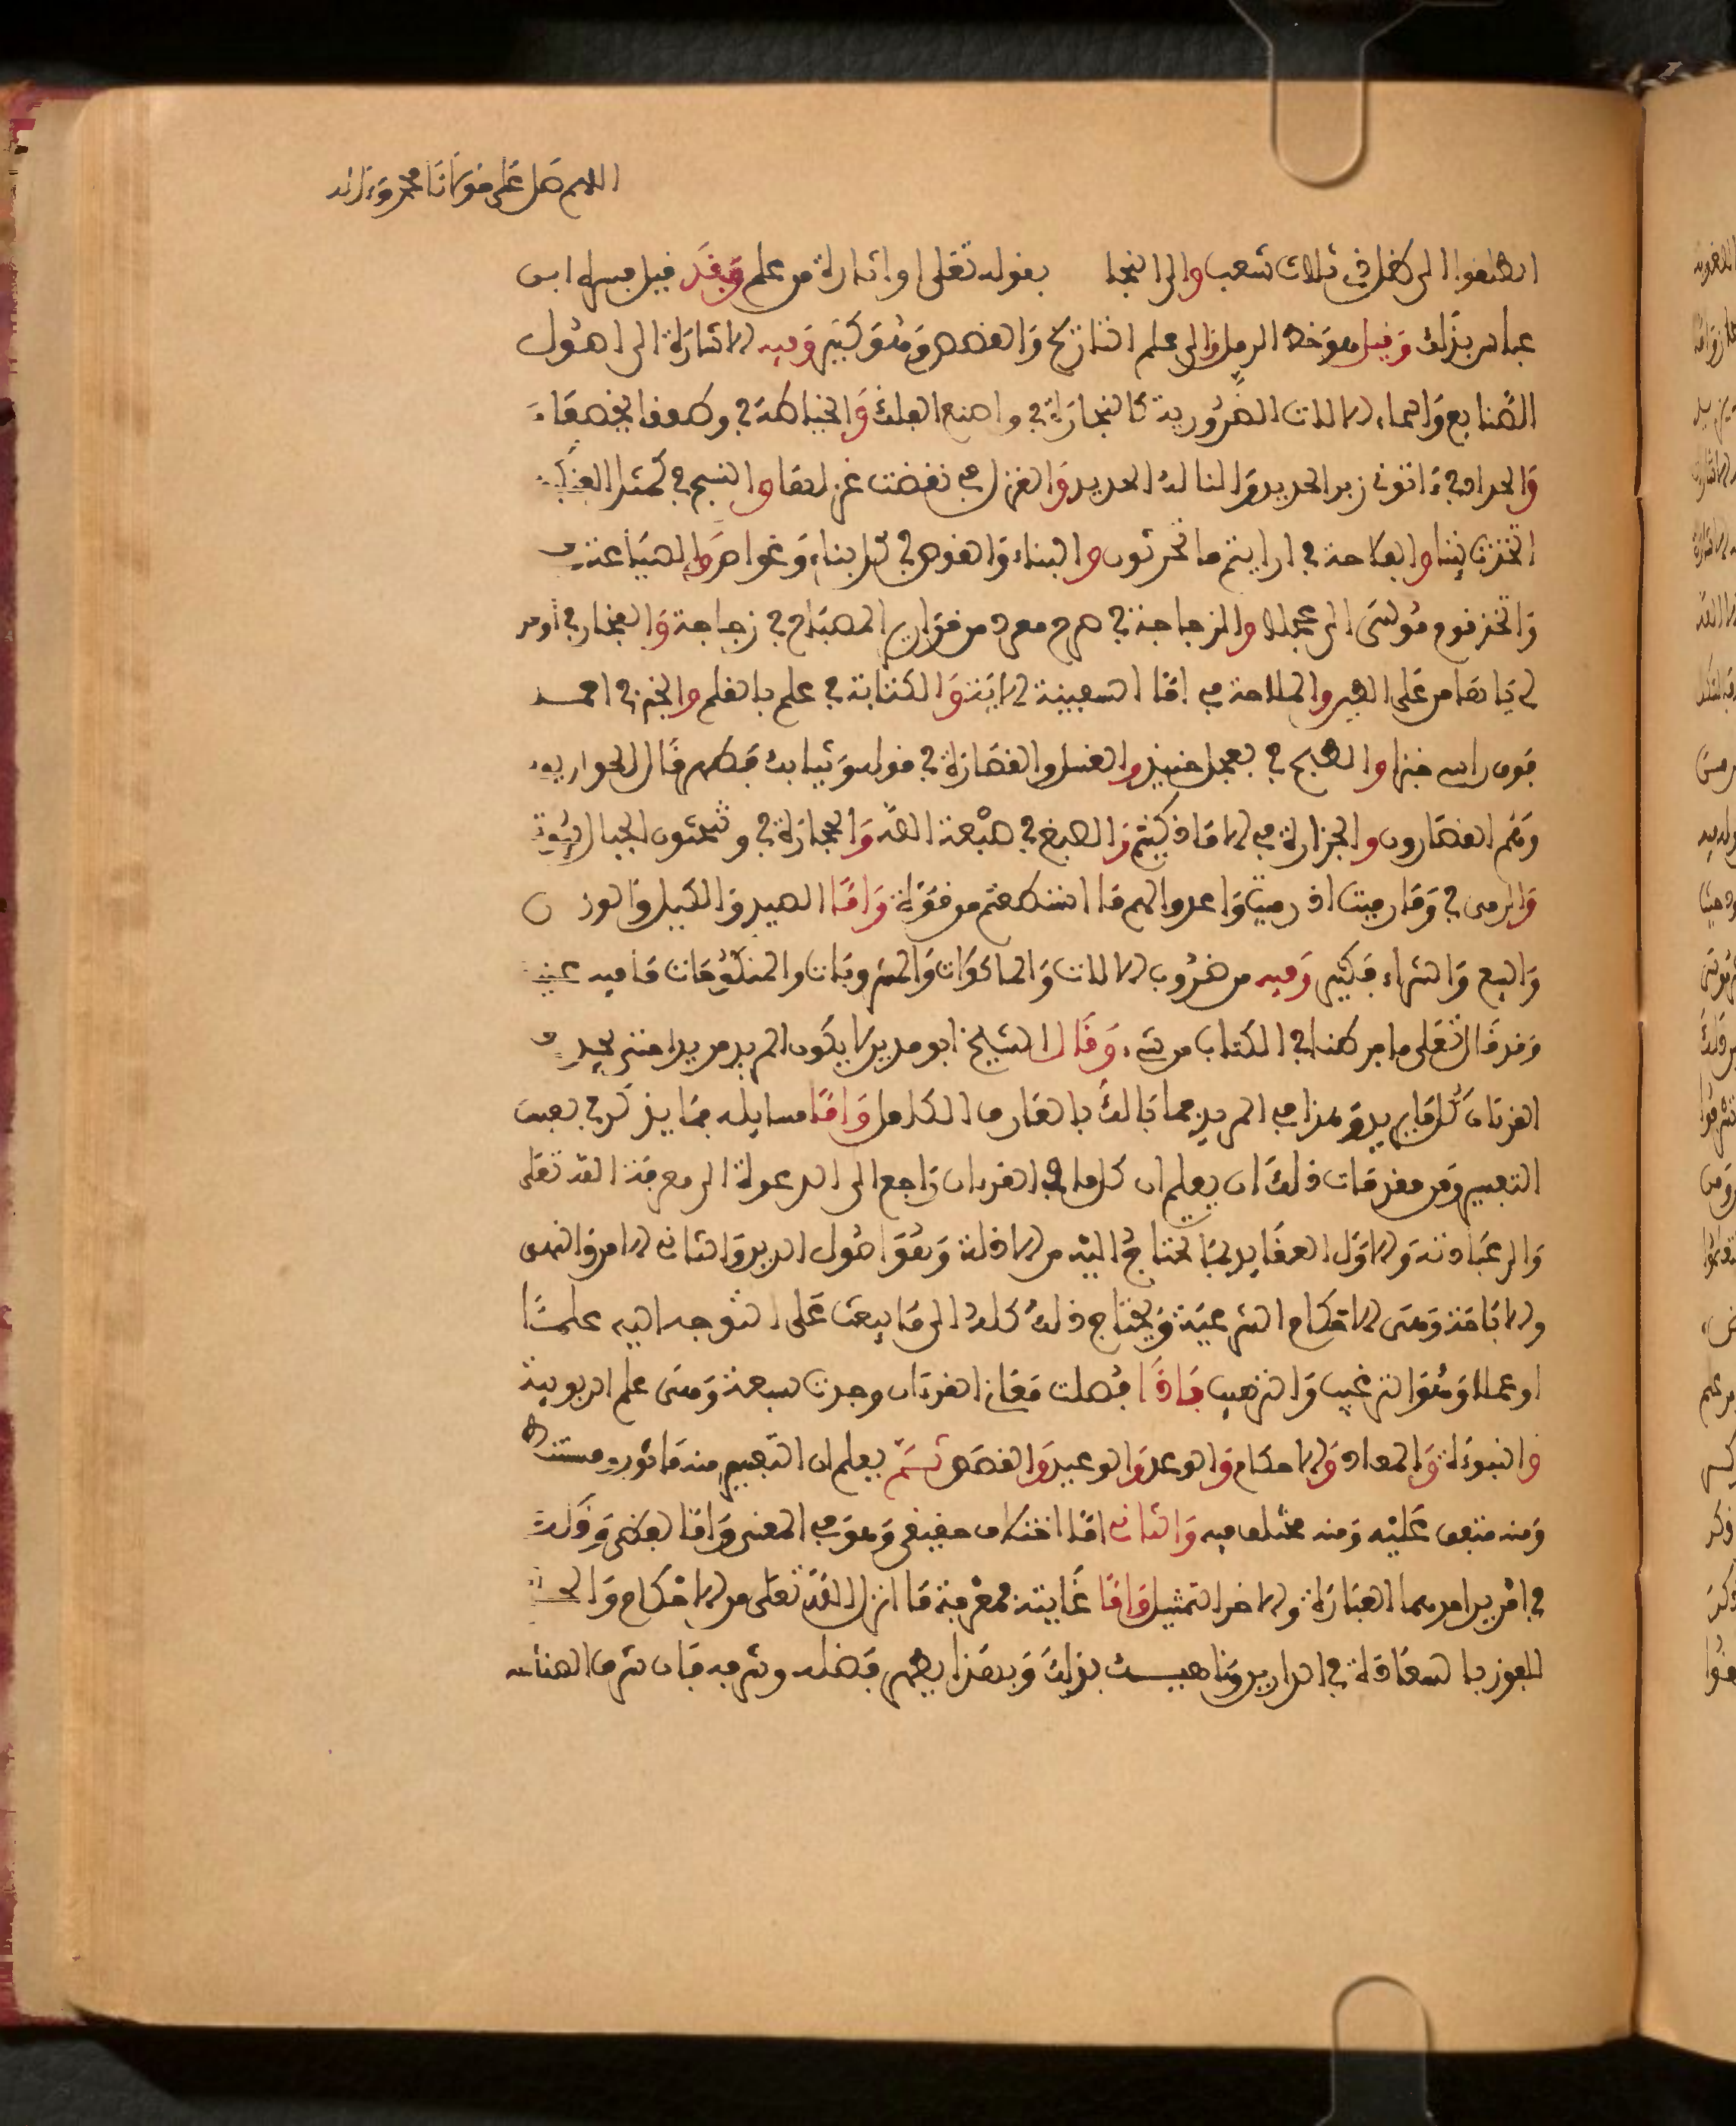 اللهم صل على مولانا محمد وءاله
انطلقوا الى ظل ذي ثلاث شعب والى النجا بقوله تعلى او اثارة من علم وقد قيل فسره ابن
عباس بذلك وقيل هو خط الرمل والى علم التاريخ والقصص وهو كثير وفيه الاشارة الى اصول
الصنايع واسماء الالات الضرورية كالنجارة في واصنع الفلك والخياطة في وطفقا يخصفان
والحدادة في ءاتوني زبر الحديد والنا له الحديد والغزل في نقضت غزلها والنسج في كمثل العنكبوت
اتخذت بيتا والفلاحة في ارايتم ما تحرثون والبناء والغوص في كل بناء وغواص والصياغة في
واتخذ قوم موسى الى عجلا والزجاجة في صرح ممرد من قوارير المصباح في زجاجة والفخار في اوقد
لي يا هامن على الطين والملاحة في اما السفينة الاية والكتابة في علم بالقلم والخبز في احمل
فوق راسي خبزا والطبخ في بعجل حنيذ والغسل والقصارة في قوله وثيابك فطهر قال الحواريون
وهم القصارون والجزارة في الا ما ذكيتم والصبغ في صبغة الله والحجارة في وتنحتون الجبال بيوتا
والرمي في وما رميت اذ رميت واعدوا لهم ما استطعتم من قوة واما الصيد والكيل والوزن
والبيع والشراء فكثير وفيه من ضروب الالات والماكولات والمشروبات والمنكوحات ما فيه
وقد قال تعلى ما فرطنا في الكتاب من شيء وقال الشيخ ابو مدين لا يكون المريد مريدا حتى يجد في
القرءان كل ما يريد وهذا في المريد فما بالك بالعارف الكامل واما مسايله فما يذكر في بعث
التفسير ومن مقدمات ذلك ان يعلم ان كل ما في القرءان راجع الى الدعوة الى معرفة الله تعلى
والى عبادته والاول العقايد بما يحتاج اليه من الادلة وهو اصول الدين والثاني الامر والنهي
والاباحة وهي الاحكام الشرعية ويحتاج ذلك كله الى ما يبعث على التوجه اليه علما
او عملا وهو الترغيب والترهيب فاذا فصلت معاني القرءان وجدت سبعة وهي علم الربوبية
والنبوءة والمعاد والاحكام والوعد والوعيد والقصص ثم يعلم ان التفسير منه ماثور ومستنبط
ومنه متفق عليه ومنه مختلف فيه والثاني اما اختلاف حقيقي وهو في المعنى واما لفظي وذلك
في امرين احدهما العبارة والاخر التمثيل واما غايته فمعرفة ما انزل الله تعلى من الاحكام
للفوز بالسعادة في الدارين وناهيك بذلك وبهذا يظهر فضله وشرفه فان شرف الصناعة